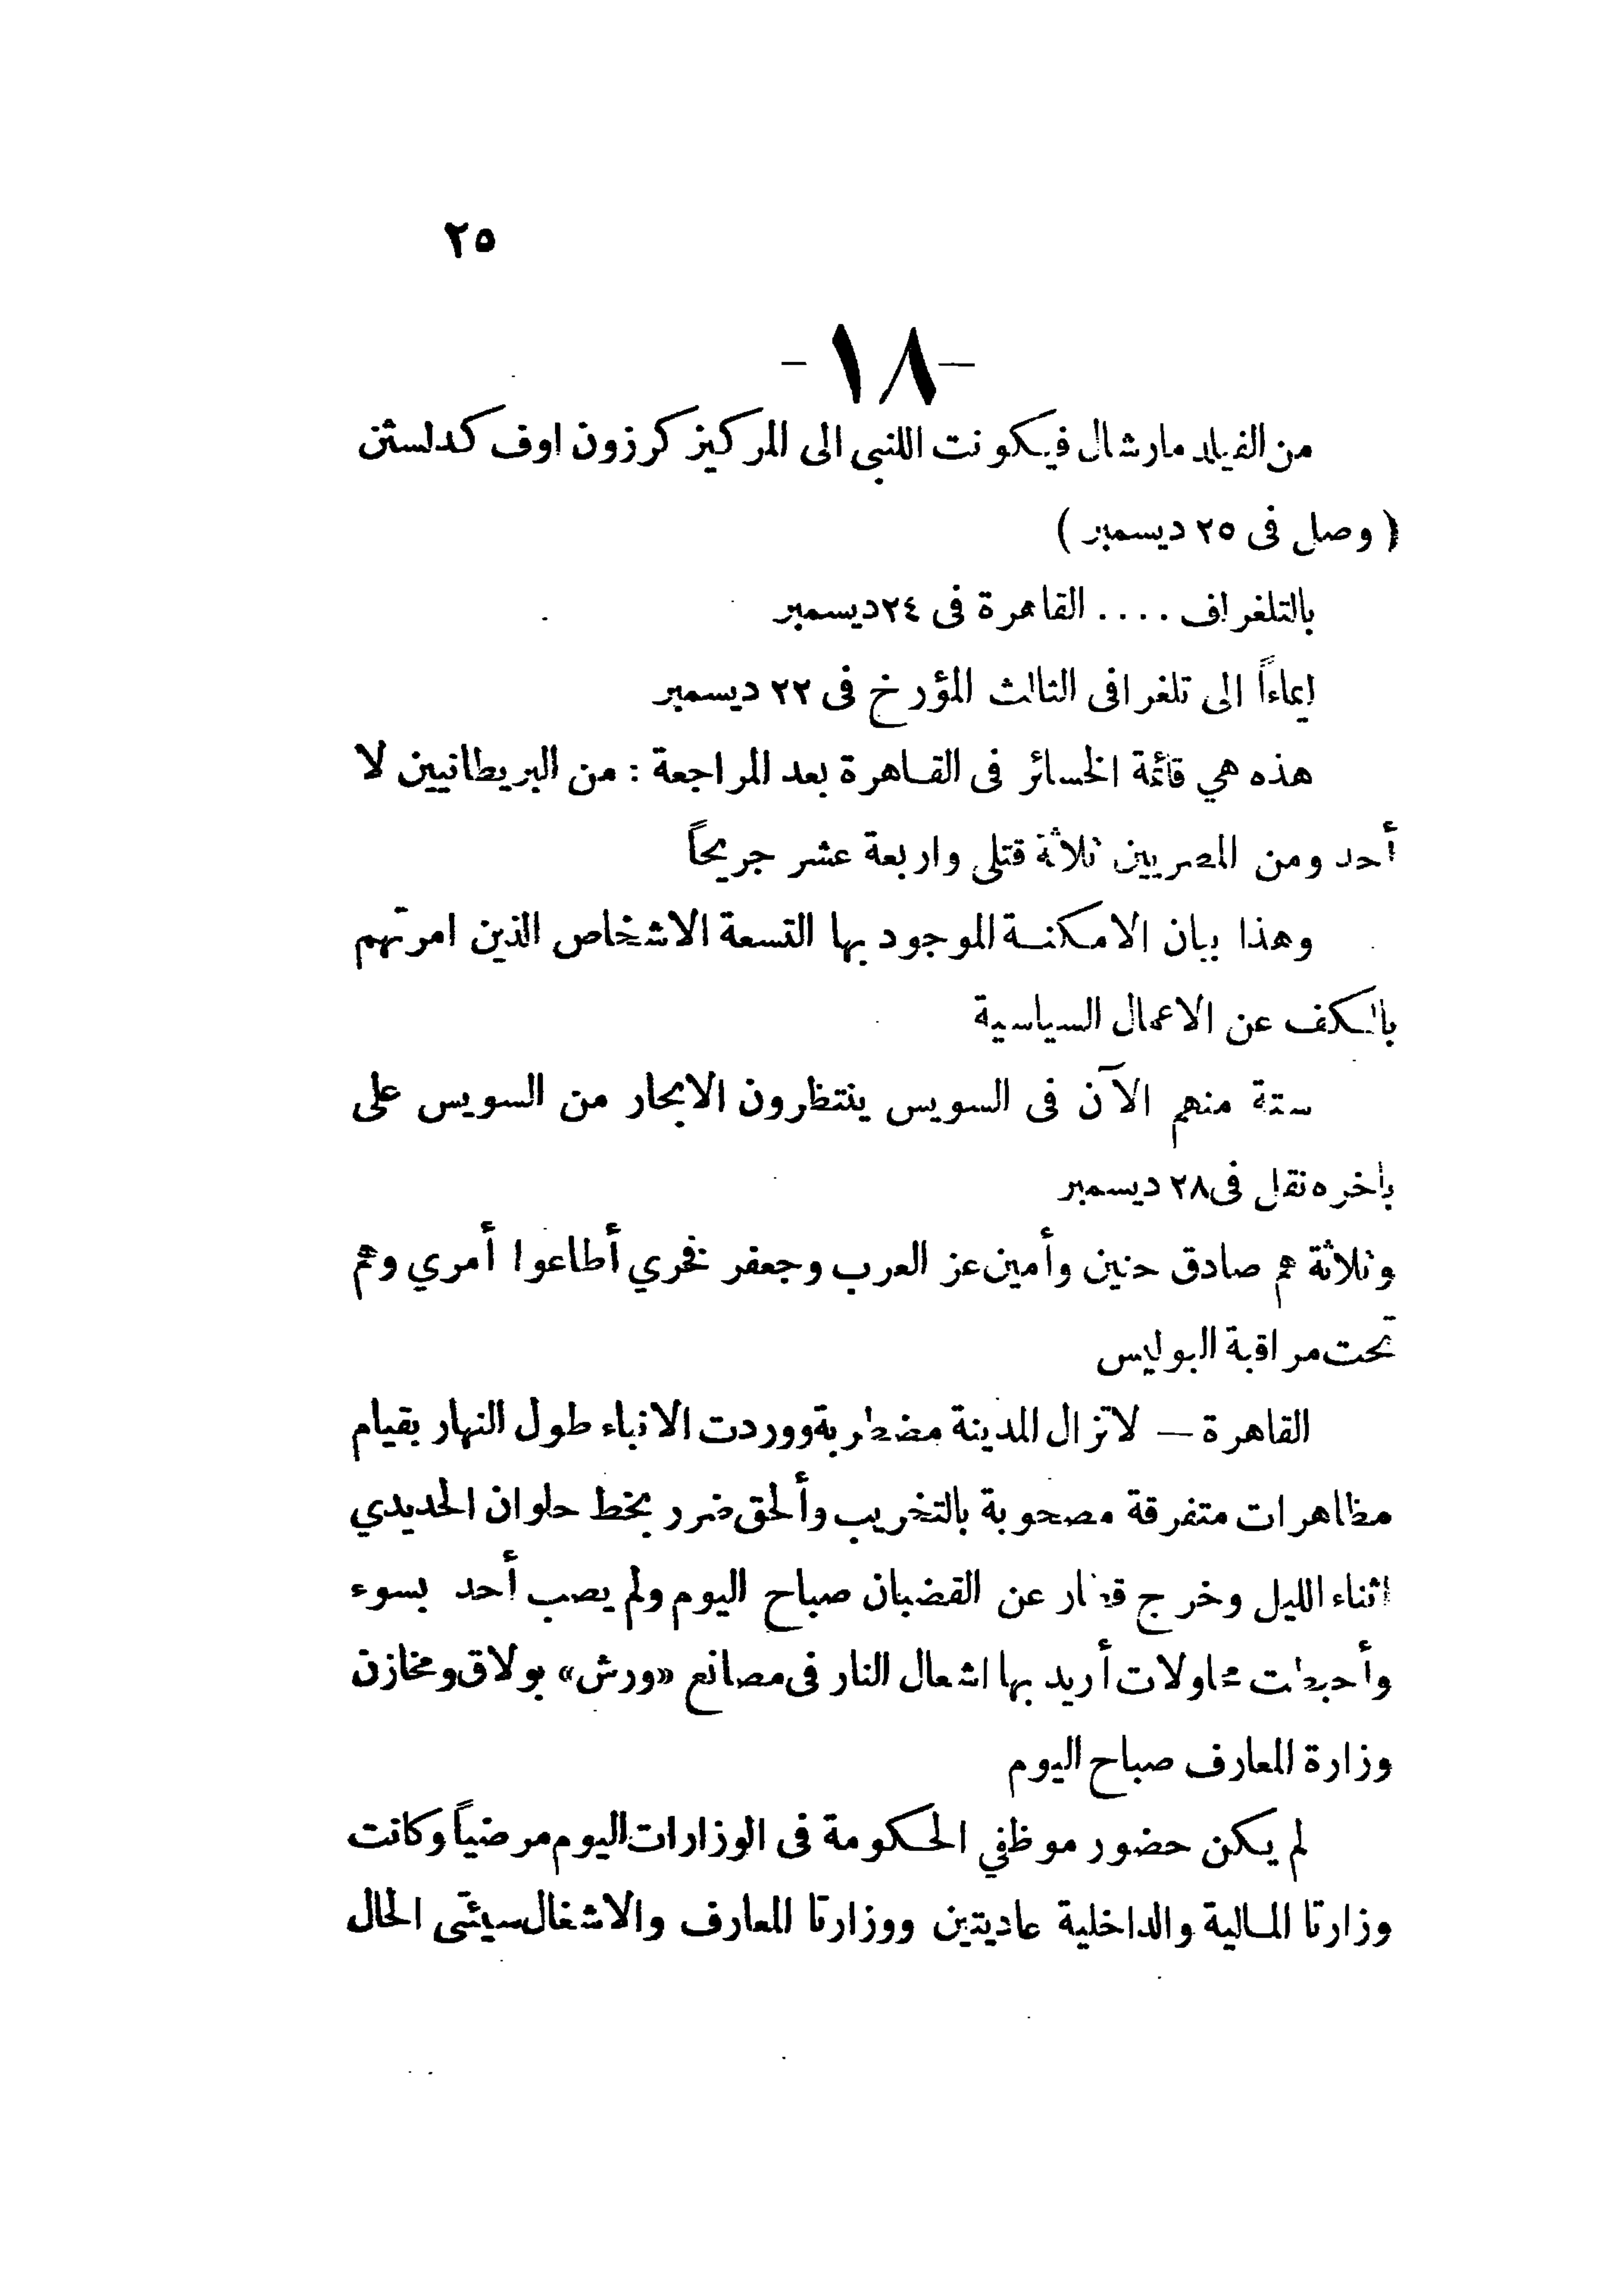 ٢٥
-١٨-
من الفيلد مارشال فيكونت اللنبي الى المركيز كرزون اوف كدلستن
( وصل فى ٢٥ ديسمبر )
بالتلغراف .... القاهرة فى ٢٤ ديسمبر
إيماءاً الى تلغرافى الثالث المؤرخ فى ٢٢ ديسمبر
هذه هي قائمة الخسائر فى القاهرة بعد المراجعة : من البريطانيين لا
أحد ومن المصريين ثلاثة قتلى واربعة عشر جريحاً
وهذا بيان الامكنة الموجود بها التسعة الاشخاص الذين امرتهم
بالكف عن الاعمال السياسية
ستة منهم الآن فى السويس ينتظرون الابحار من السويس على
باخره نقل فى ٢٨ ديسمبر
وثلاثة هم صادق حنين وأمين عز العرب وجعفر فخري أطاعوا أمري وهم
تحت مراقبة البوليس
القاهرة — لا تزال المدينة مضطربة ووردت الانباء طول النهار بقيام
مظاهرات متفرقة مصحوبة بالتخريب وألحق ضرر بخط حلوان الحديدي
اثناء الليل وخرج قطار عن القضبان صباح اليوم ولم يصب أحد بسوء
وأحبطت محاولات أريد بها اشعال النار فى مصانع «ورش» بولاق ومخازن
وزارة المعارف صباح اليوم
لم يكن حضور موظفي الحكومة فى الوزارات اليوم مرضياً وكانت
وزارتا المالية والداخلية عاديتين ووزارتا المعارف والاشغال سيئتى الحال